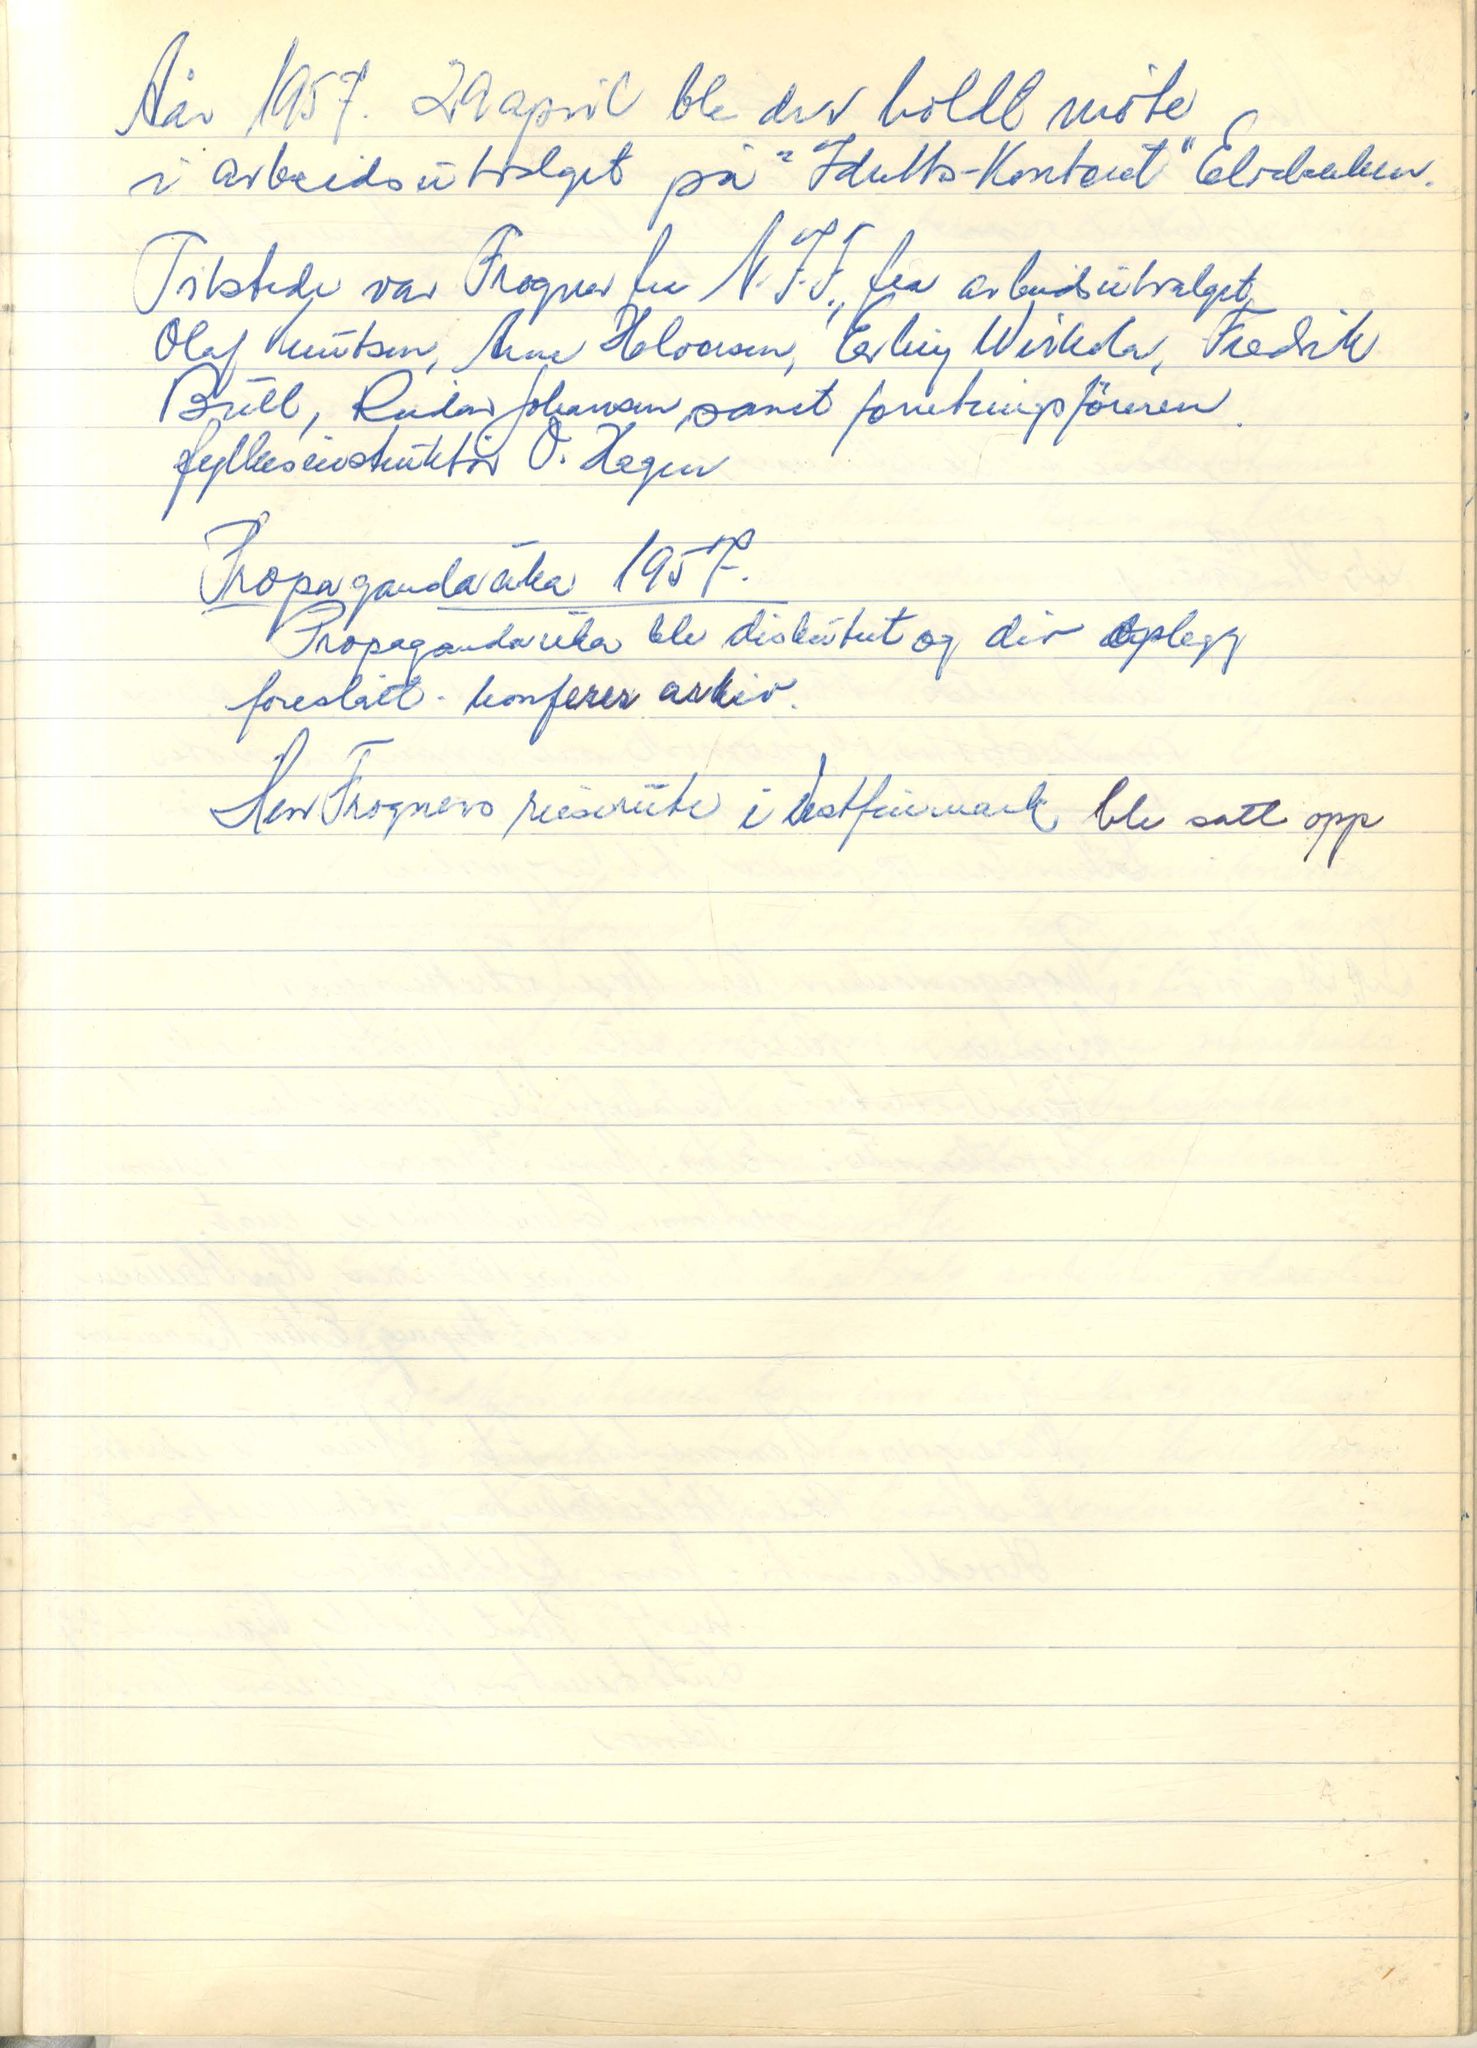 År 1957. 29 april ble der holdt möte
i arbeidsutvalget på "Idretts-Kontoret" Elvebakken.
Tilstede var Frogner fra N.F.F., fra arbeidsutvalget,
Olaf Knutsen, Arne Halvorsen, Erling Wirkola, Fredrik
Bull, Reidar Johansen, samt forretningsföreren
fylkesinstruktör O. Hagen
Propagandauka 1957.
Propagandauka ble diskutert og div opplegg
foreslått - konferer arkiv.
Herr Frogners reiserute i Vestfinnmark ble satt opp